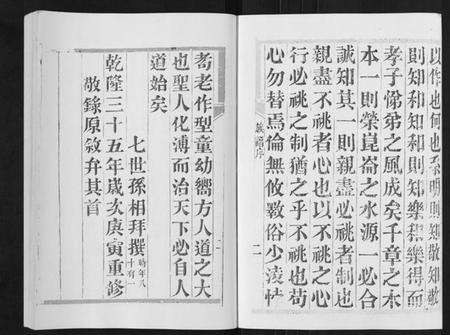 以作也何也系明則知敬知敬
則知和知和則知樂知樂得而
孝子悌弟之風成矣千章之木
本一則榮崑崙之水源一必合
誠知其一則親盡必祧者制也
親盡不祧者心也以不祧之心
行必祧之制猶之乎不祧也苟
心勿替焉倫無攸斁俗少淩忮
族譜序
二
耈老作型童幼嚮方人道之大
也聖人化溥而治天下必自人
道始矣
七世孫相拜撰
時年八
十有一
乾隆三十五年歲次庚寅重修
敬錄原敘弁其首